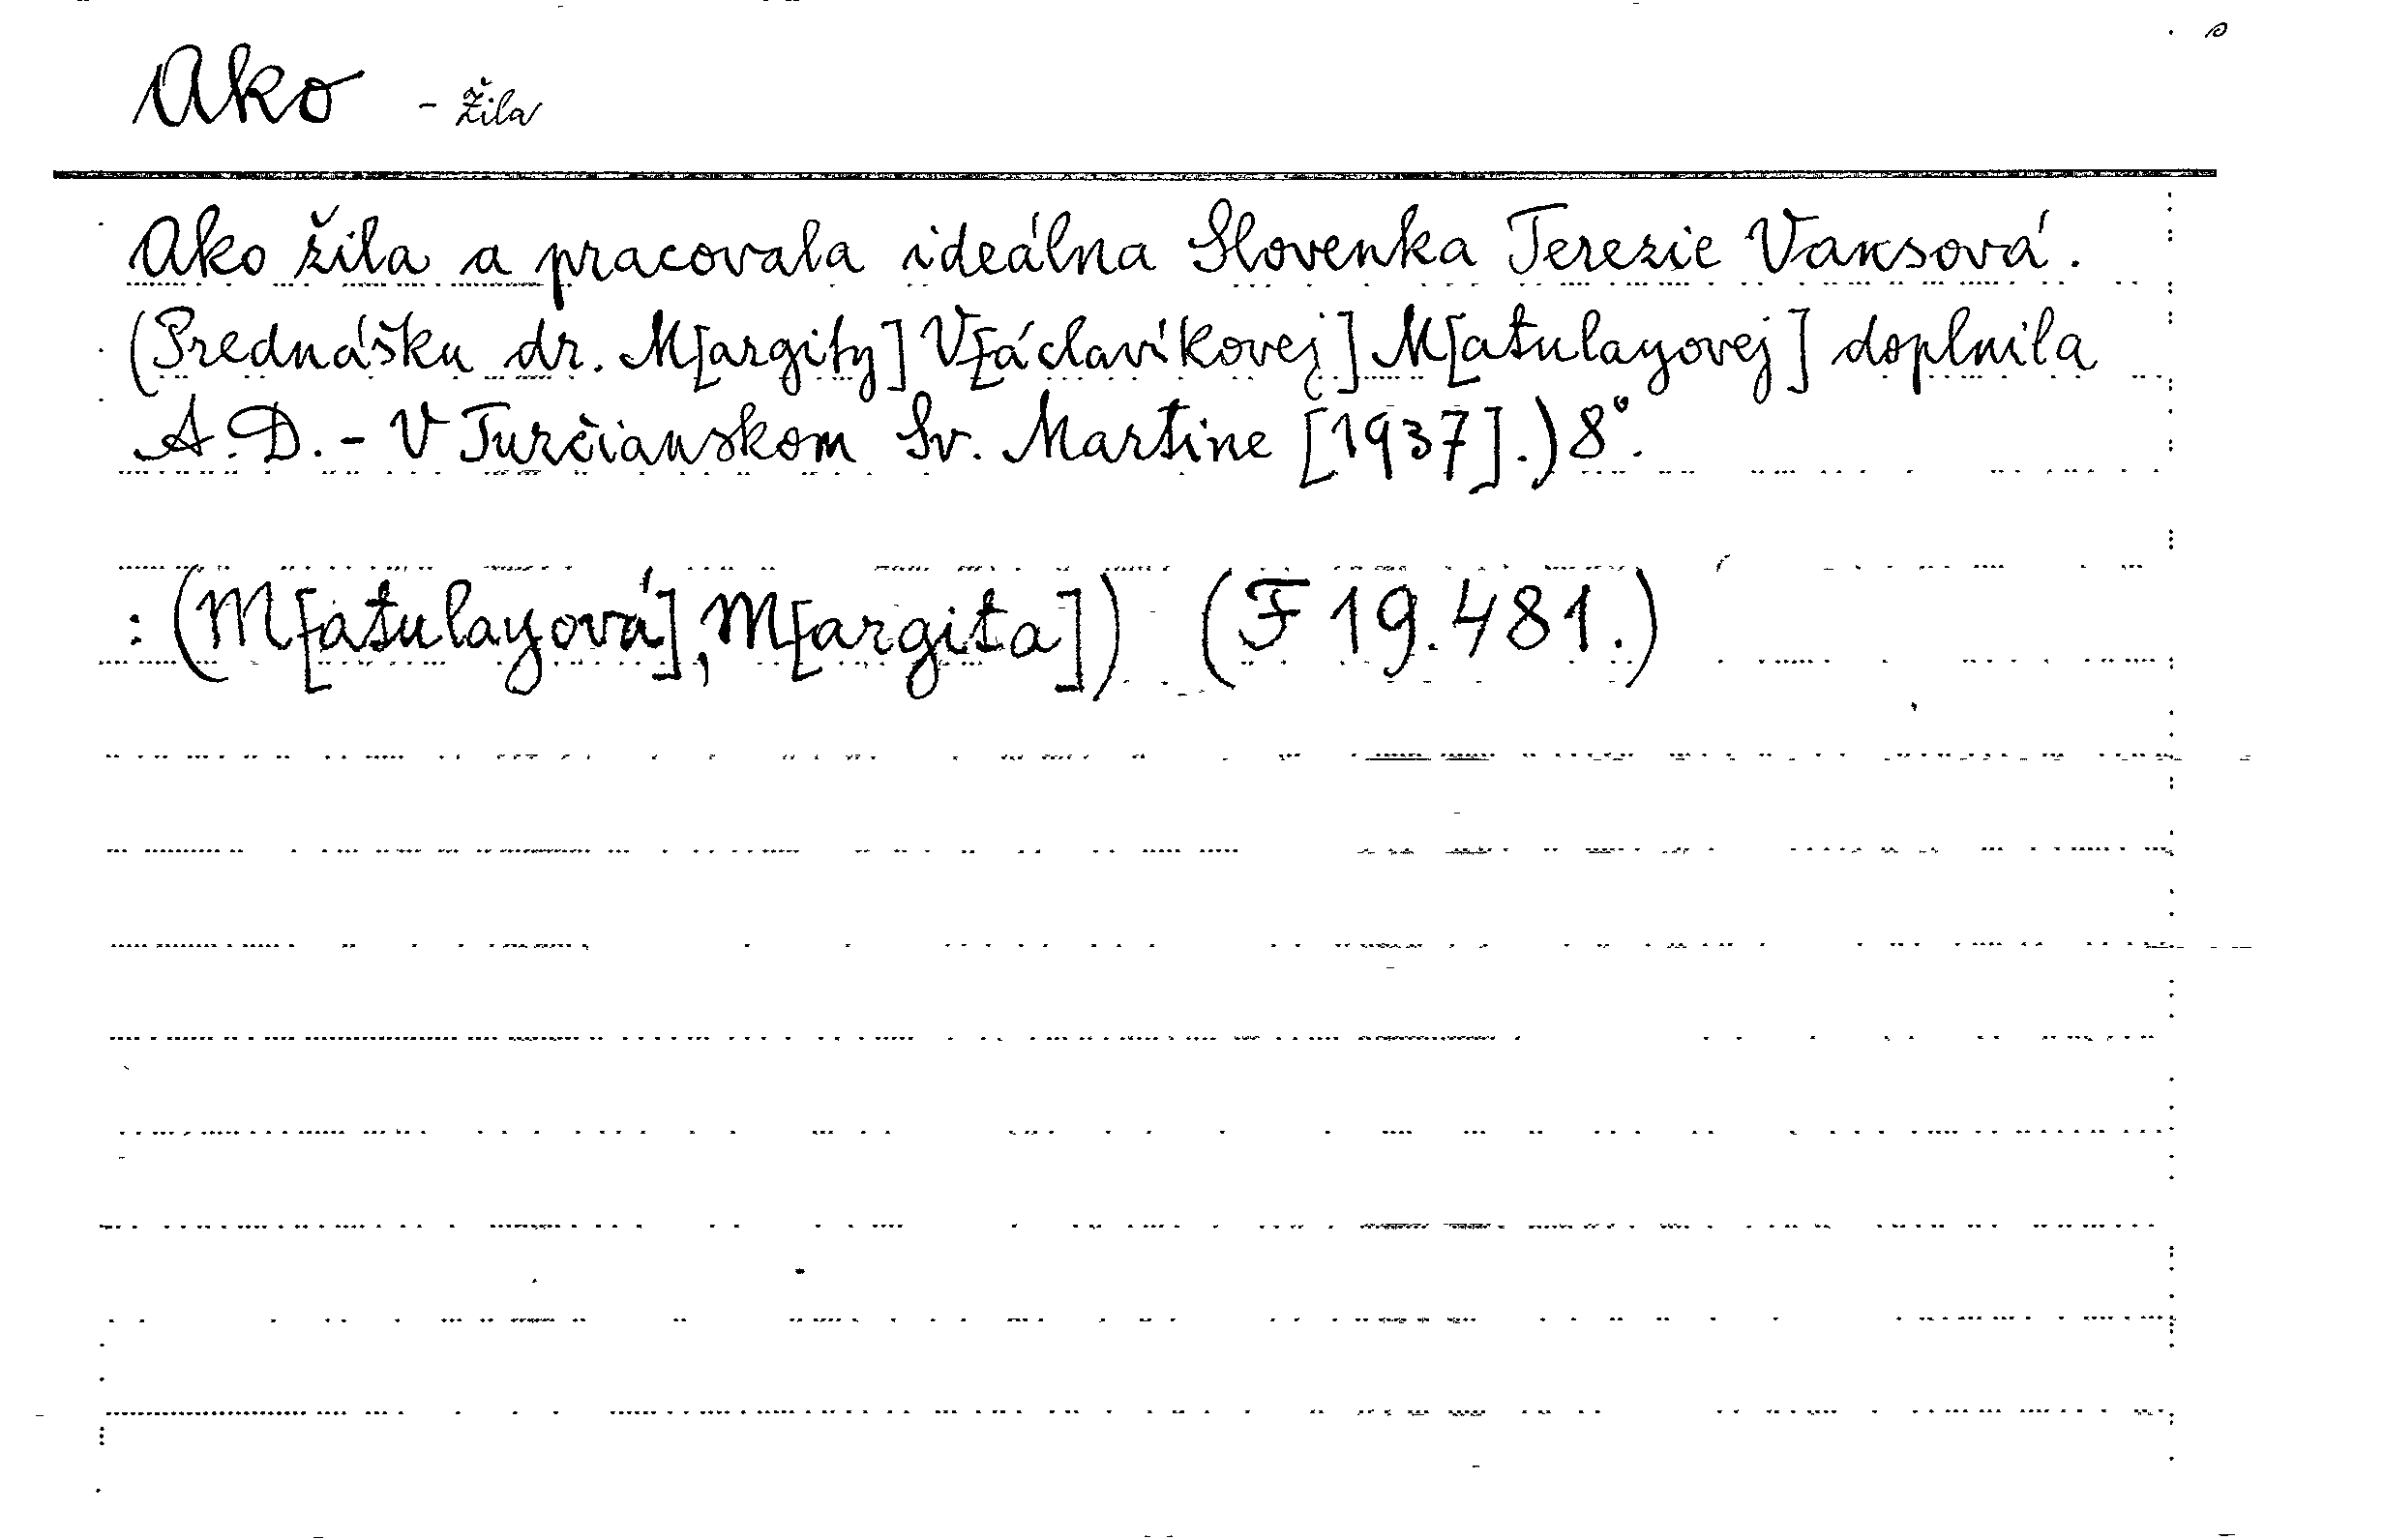 Ako - žila
Ako žila a pracovala ideálna Slovenka Terezie Vansová.
(Prednášku dr. M[argity] V[áclavíkovej] M[atulayovej] doplnila
A.D. - V Turčianskom Sv. Martine [1937].) 8°.
: (M[atulayová], M[argita]) (F 19.481.)